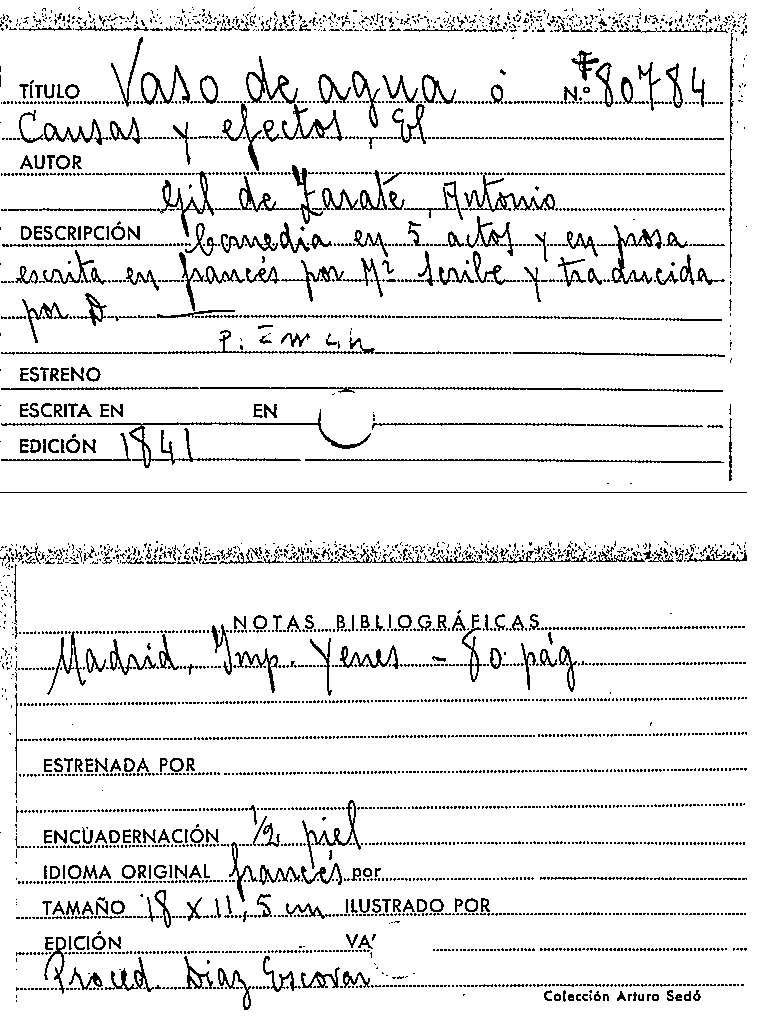 TÍTULO Vaso de agua ó N.º 80784
Causas y efectos, El
AUTOR
Gil de Zarate, Antonio
DESCRIPCIÓN Comedia en 5 actos y en prosa
escrita en francés por Mr Scribe y traducida
por D. ———
ESTRENO
ESCRITA EN EN
EDICIÓN 1841
NOTAS BIBLIOGRÁFICAS
Madrid, Imp. Yenes - 80 pág.
ESTRENADA POR
ENCUADERNACIÓN 1/2 piel
IDIOMA ORIGINAL francés por
TAMAÑO 18 x 11,5 cm ILUSTRADO POR
EDICIÓN VA'
Proced. Diaz Escovar
Colección Arturo Sedó